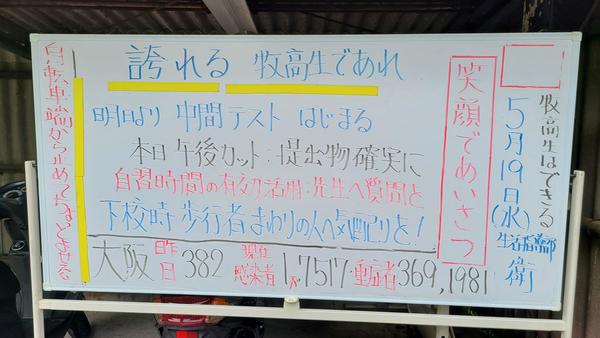 牧高生はできる
5月19日(水)
生活指導部
衛
笑顔であいさつ
誇れる 牧高生であれ
明日より 中間テスト はじまる
本日 午後カット:提出物確実に
自習時間の有効活用:先生へ質問を
下校時 歩行者 まわりの人へ気配りを!
大阪 昨日 382 現在感染者 1万7517・重症者369,1981
自転車端から止めて